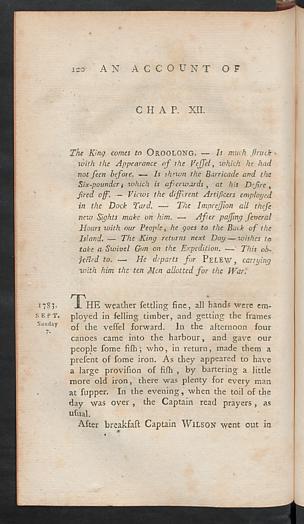 120 AN ACCOUNT OF
CHAP. XII.
The King comes to OROOLONG. — Is much ſtruck
with the Appearance of the Veſſel, which he had
not ſeen before. — Is shewn the Barricade and the
Six-pounder; which is afterwards, at his Deſire,
fired off. — Views the different Artificers employed
in the Dock Yard. — The Impreſſion all theſe
new Sights make on him. — After paſſing ſeveral
Hours with our People, he goes to the Back of the
Island. — The King returns next Day — wishes to
take a Swivel Gun on the Expedition. — This ob-
jected to. — He departs for PELEW, carrying
with him the ten Men allotted for the War.
1783.
SEPT.
Sunday
7.
THE weather ſettling fine, all hands were em-
ployed in felling timber, and getting the frames
of the veſſel forward. In the afternoon four
canoes came into the harbour, and gave our
people ſome fiſh; who, in return, made them a
preſent of ſome iron. As they appeared to have
a large proviſion of fiſh, by bartering a little
more old iron, there was plenty for every man
at ſupper. In the evening, when the toil of the
day was over, the Captain read prayers, as
uſual.
After breakfaſt Captain WILSON went out in